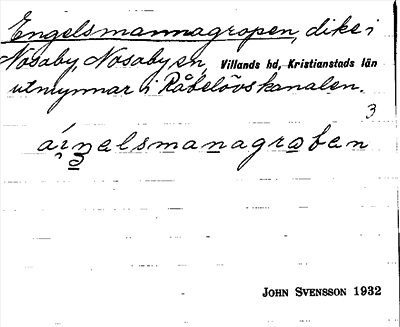 Engelsmannagropen, dike i
Nosaby, Nosaby sn, Villands hd, Kristianstads län
utmynnar i Råbelövskanalen.
3
John Svensson 1932